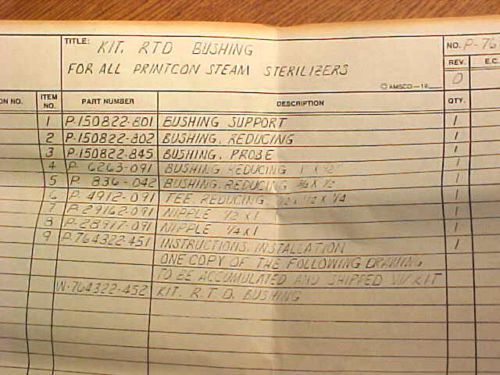 TITLE: KIT, RTD BUSHING
FOR ALL PRINTCON STEAM STERILIZERS
© AMSCO-
NO. P-76
REV. E.C.
0
ON NO. ITEM NO. PART NUMBER DESCRIPTION QTY.
1 P-150822-801 BUSHING SUPPORT 1
2 P-150822-802 BUSHING, REDUCING 1
3 P-150822-845 BUSHING, PROBE 1
4 P- 6263-091 BUSHING REDUCING 1 1
5 P- 836-042 BUSHING, REDUCING 1
6 P- 4912-091 TEE REDUCING, 1
7 P-29162-091 NIPPLE 1/2 X 1 1
8 P-28917-091 NIPPLE 1/4 X 1 1
9 P-764322-451 INSTRUCTIONS, INSTALLATION 1
ONE COPY OF THE FOLLOWING DRAWING
TO BE ACCUMULATED AND SHIPPED W/KIT
W-764322-452 KIT, R.T.D. BUSHING